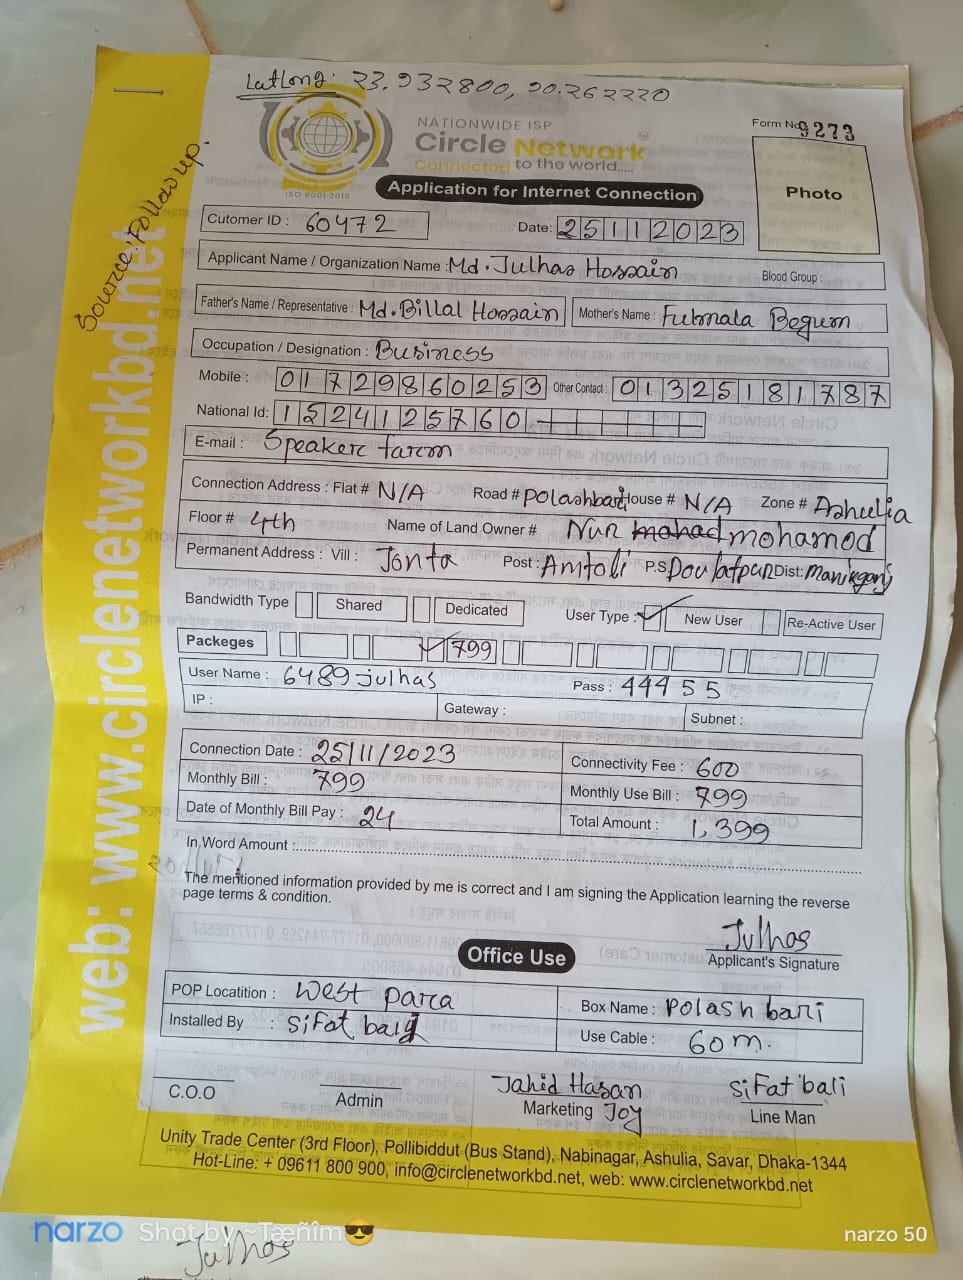 LatLong: 23.932800, 90.262220
NATIONWIDE ISP
Circle Network
Connected to the world.....
ISO 9001:2015
Form No 9273
Photo
Application for Internet Connection
Source: Followup.
web: www.circlenetworkbd.net
Cutomer ID : 60472
Date: 25112023
Applicant Name / Organization Name : Md. Julhas Hossain
Blood Group :
Father's Name / Representative : Md. Billal Hossain
Mother's Name : Fulmala Begum
Occupation / Designation : Business
Mobile : 01729860253 Other Contact : 01325181787
National Id: 1524125760
E-mail : Speaker farm
Connection Address : Flat # N/A Road # Polashbari House # N/A Zone # Ashulia
Floor # 4th Name of Land Owner # Nur mohamod
Permanent Address : Vill : Jonta Post : Amtoli P.S Doulatpur Dist: Manikgonj
Bandwidth Type Shared Dedicated User Type : New User Re-Active User
Packeges 799
User Name : 6489julhas Pass : 44455
IP : Gateway : Subnet :
Connection Date : 25/11/2023 Connectivity Fee : 600
Monthly Bill : 799 Monthly Use Bill : 799
Date of Monthly Bill Pay : 24 Total Amount : 1,399
In Word Amount :
The mentioned information provided by me is correct and I am signing the Application learning the reverse
page terms & condition.
Julhas
Applicant's Signature
Office Use
POP Locatition : West Parca Box Name : Polashbari
Installed By : Sifat bali Use Cable : 60m.
Jahid Hasan Sifat bali
C.O.O Admin Marketing Joy Line Man
Unity Trade Center (3rd Floor), Pollibiddut (Bus Stand), Nabinagar, Ashulia, Savar, Dhaka-1344
Hot-Line: + 09611 800 900, info@circlenetworkbd.net, web: www.circlenetworkbd.net
narzo Shot by ~ Tæñîm😎 narzo 50
Julhas